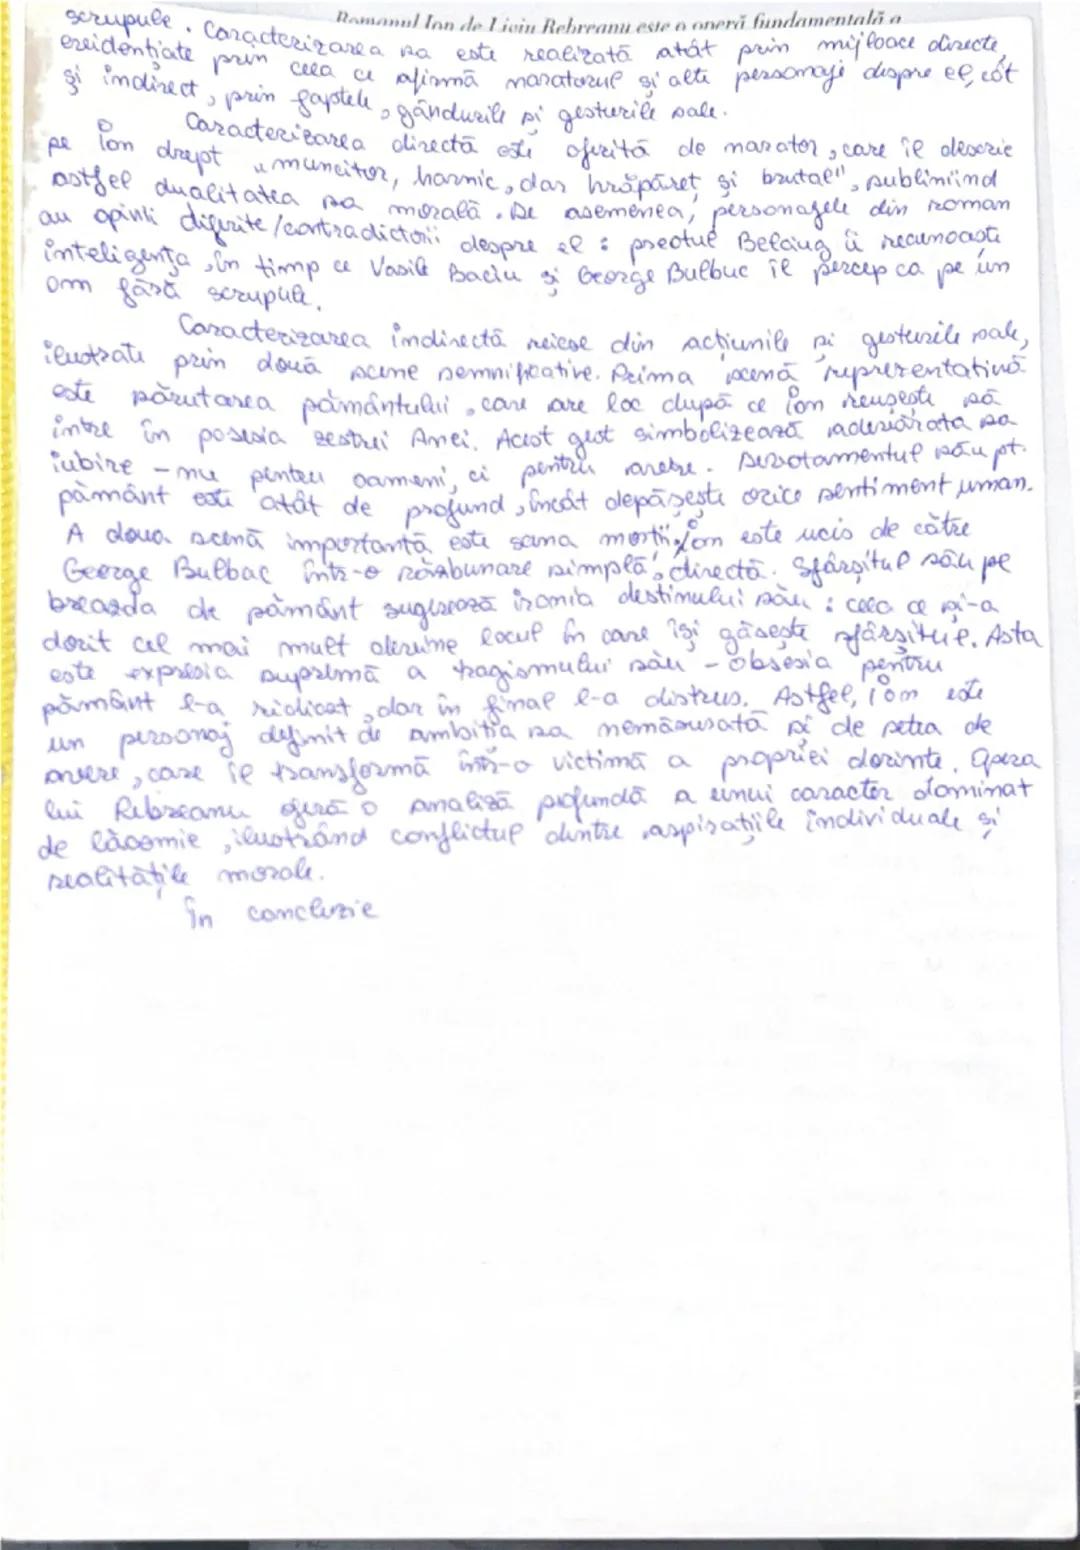 Romanul Ion de Liviu Rebreanu este o operă fundamentală a
scrupule. Caracterizarea sa este realizată atât prin mijloace directe,
evidențiate prin ceea ce afirmă naratorul și alte personaje despre el, cât
și indirect, prin faptele, gândurile și gesturile sale.
Caracterizarea directă este oferită de narator, care îl descrie
pe Ion drept "muncitor, harnic, dar hrăpăreț și brutal", subliniind
astfel dualitatea sa morală. De asemenea, personajele din roman
au opinii diferite/contradictorii despre el: preotul Belciug îi recunoaște
inteligența, în timp ce Vasile Baciu și George Bulbuc îl percep ca pe un
om fără scrupule.
Caracterizarea indirectă reiese din acțiunile și gesturile sale,
ilustrate prin două scene semnificative. Prima scenă reprezentativă
este sărutarea pământului, care are loc după ce Ion reușește să
intre în posesia zestrei Anei. Acest gest simbolizează adevărata sa
iubire - nu pentru oameni, ci pentru avere. Devotamentul său pt.
pământ este atât de profund, încât depășește orice sentiment uman.
A doua scenă importantă este scena morții. Ion este ucis de către
George Bulbuc într-o răzbunare simplă, directă. Sfârșitul său pe
breazda de pământ sugerează ironia destinului său: ceea ce și-a
dorit cel mai mult devine locul în care își găsește sfârșitul. Asta
este expresia supremă a tragismului său - obsesia pentru
pământ l-a ridicat, dar în final l-a distrus. Astfel, Ion este
un personaj definit de ambiția sa nemăsurată și de setea de
avere, care îl transformă într-o victimă a propriei dorințe. Opera
lui Rebreanu oferă o analiză profundă a unui caracter dominat
de lăcomie, ilustrând conflictul dintre aspirațiile individuale și
realitățile morale.
În concluzie